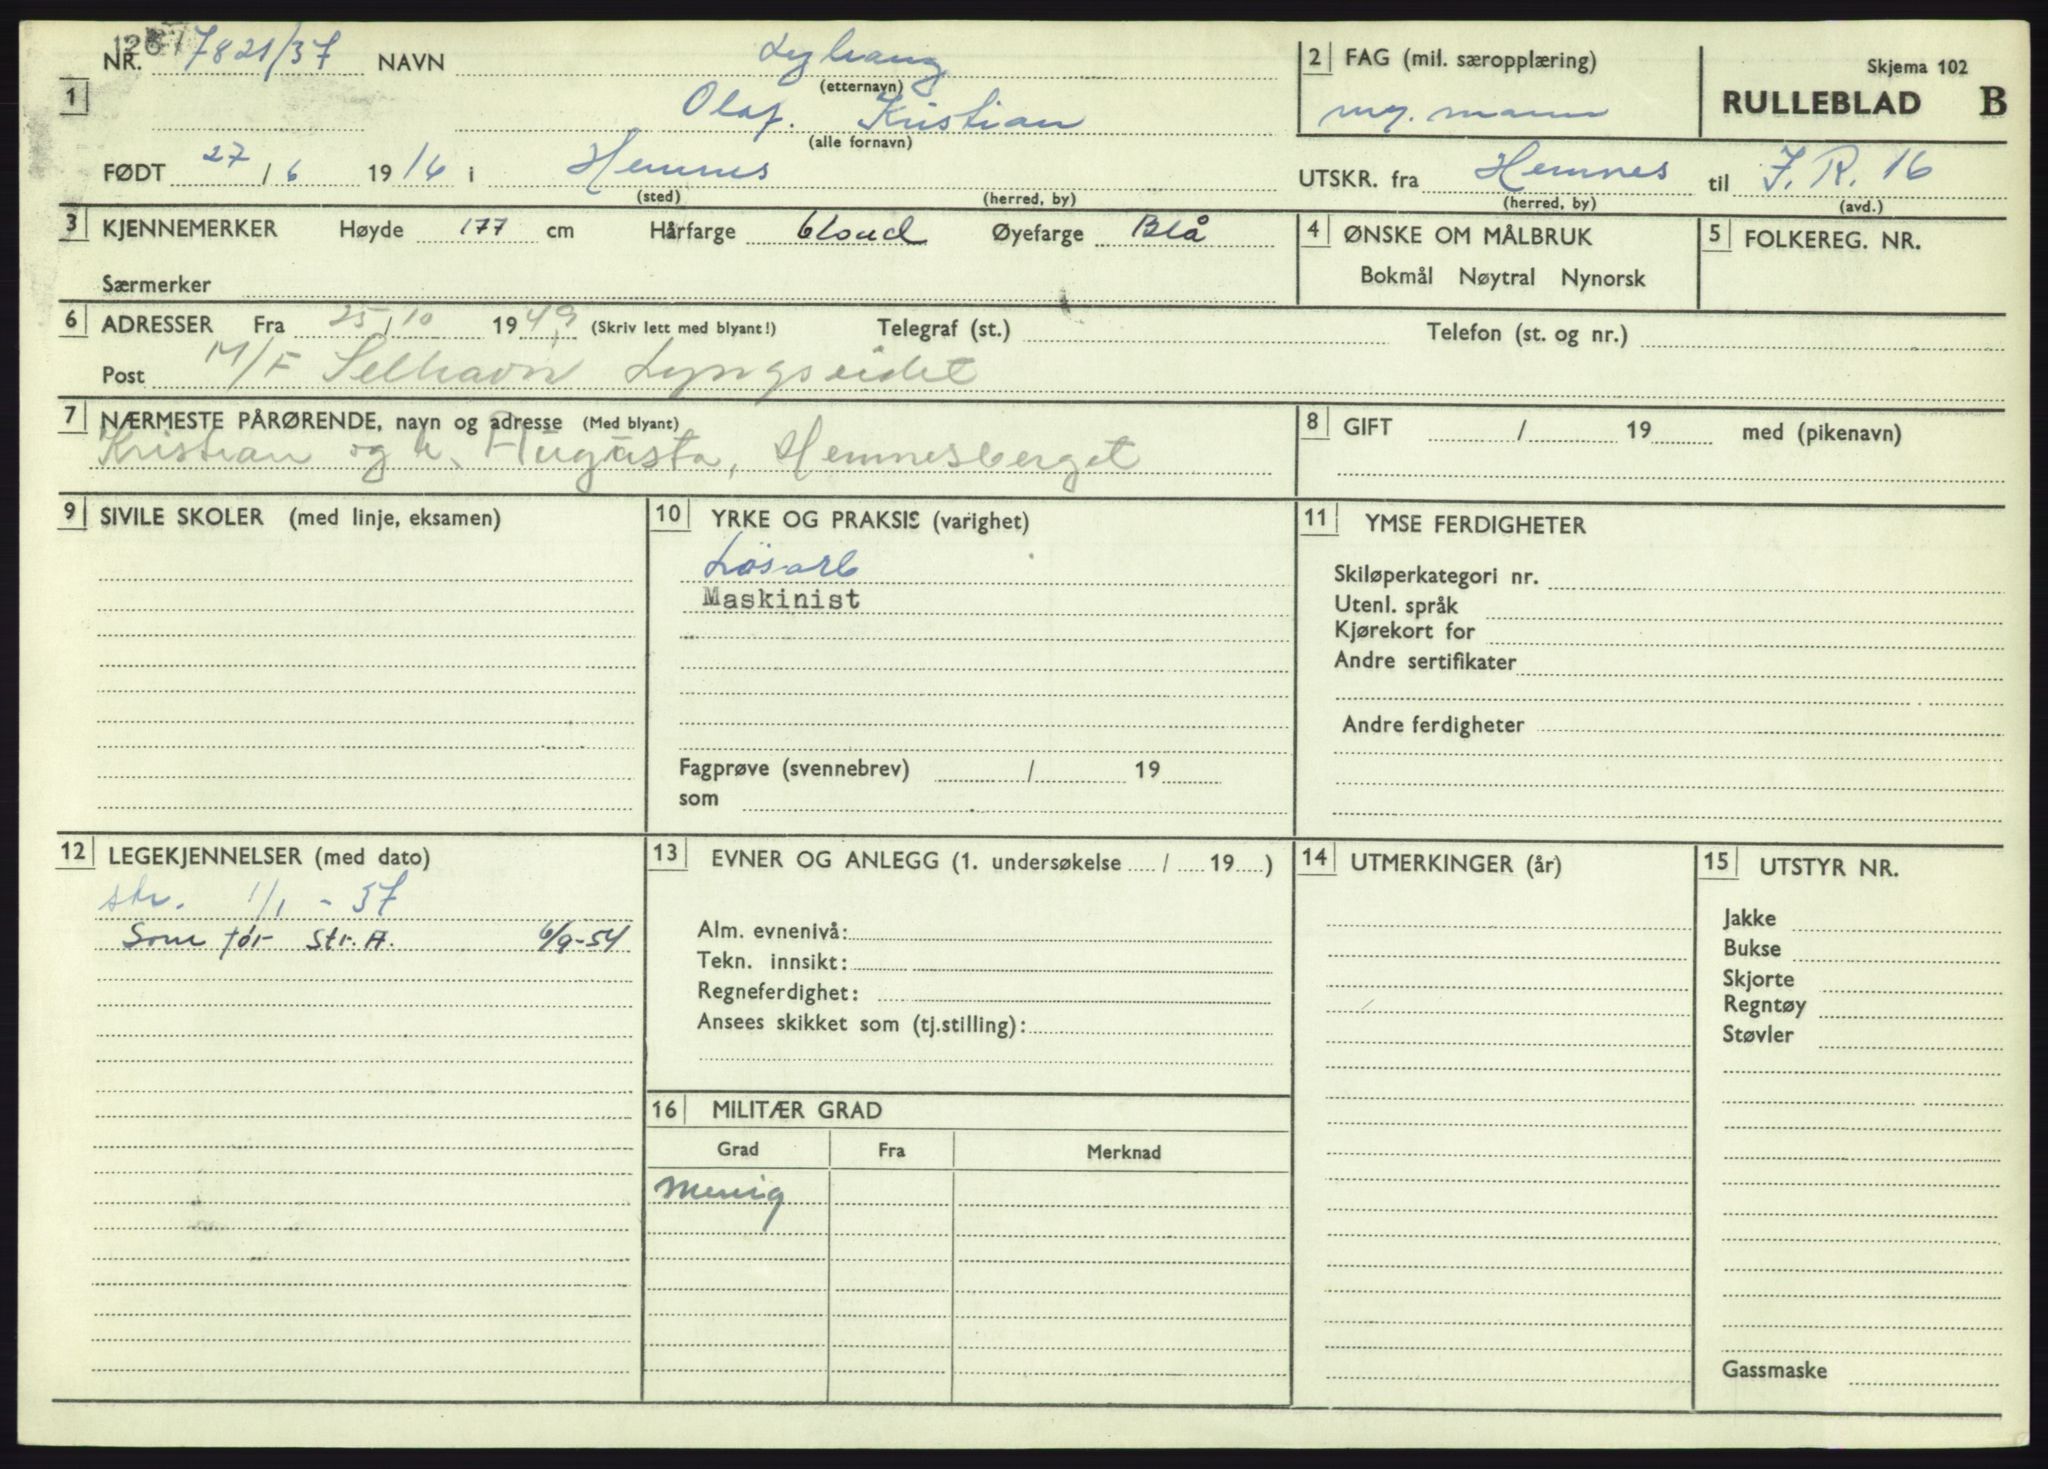 NR. 7821/37 NAVN Lyhaug
1
(etternavn)
Olaf. Kristian
(alle fornavn)
2 FAG (mil. særopplæring)
my. mann
Skjema 102
RULLEBLAD B
FØDT 27/6 1916 i Hemnes
(sted) (herred, by)
UTSKR. fra Hemnes til J. R. 16
(herred, by) (avd.)
3 KJENNEMERKER Høyde 177 cm Hårfarge blond Øyefarge Blå
Særmerker
4 ØNSKE OM MÅLBRUK
Bokmål Nøytral Nynorsk
5 FOLKEREG. NR.
6 ADRESSER Fra 25/10 1949 (Skriv lett med blyant!) Telegraf (st.) Telefon (st. og nr.)
Post M/F Selhavn Lyngseidet
7 NÆRMESTE PÅRØRENDE, navn og adresse (Med blyant)
Kristian og h. Augusta, Hemnesberget
8 GIFT / 19 med (pikenavn)
9 SIVILE SKOLER (med linje, eksamen)
10 YRKE OG PRAKSIS (varighet)
Løsarb
Maskinist
Fagprøve (svennebrev) / 19
som
11 YMSE FERDIGHETER
Skiløperkategori nr.
Utenl. språk
Kjørekort for
Andre sertifikater
Andre ferdigheter
12 LEGEKJENNELSER (med dato)
str. 1/1 - 37
Som før Str. A. 6/9-54
13 EVNER OG ANLEGG (1. undersøkelse / 19 )
Alm. evnenivå:
Tekn. innsikt:
Regneferdighet:
Ansees skikket som (tj.stilling):
14 UTMERKINGER (år)
15 UTSTYR NR.
Jakke
Bukse
Skjorte
Regntøy
Støvler
Gassmaske
16 MILITÆR GRAD
Grad Fra Merknad
Menig